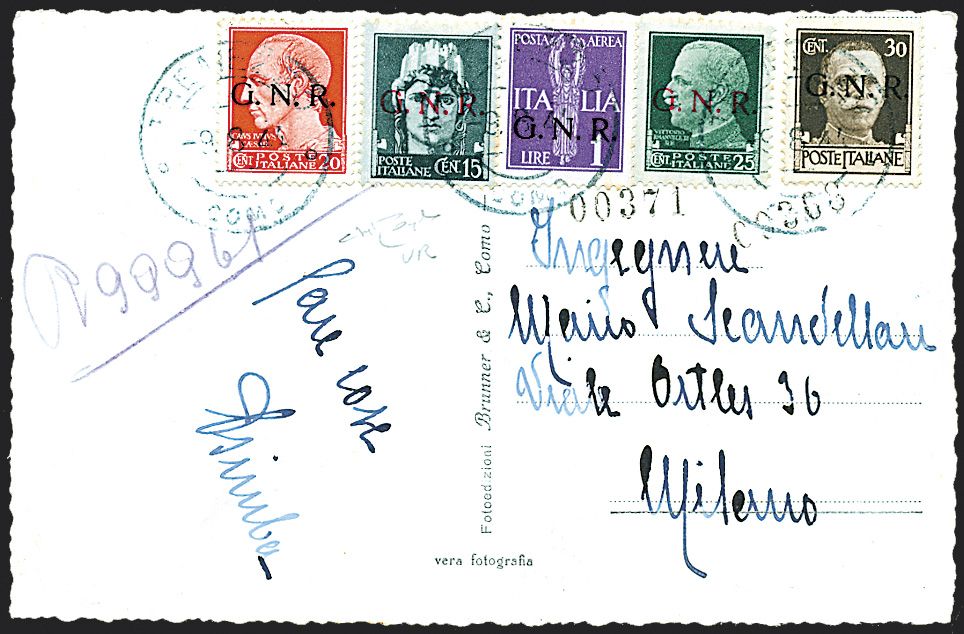 G. N. R.
CENT POSTE ITALIANE 20
G. N. R.
POSTE ITALIANE CENT 15
POSTA AEREA
ITALIA
G. N. R.
LIRE 1
G. N. R.
VITTORIO
CENT POSTE ITALIANE 25
CENT. 30
G. N. R.
POSTE ITALIANE
COMO
00371
99961
Care cose
Ingegnere
Mario Scandellari
Viale Ortles 36
Milano
Fotoedizioni Brunner & C., Como
vera fotografia